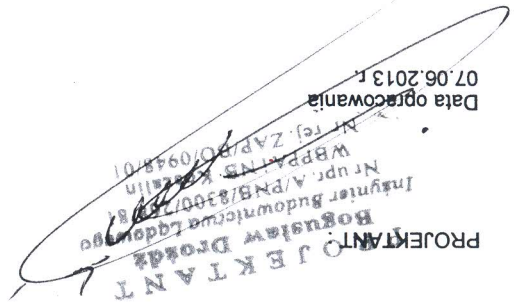 PROJEKTANT:
PROJEKTANT
Bogusław Drozdz
Inżynier Budownictwa Lądowego
Nr upr. A/PNB/8300/
WBPPAiNB Koszalin
Nr rej. ZAP/BO/0948/01
Data opracowania
07.06.2013 r.